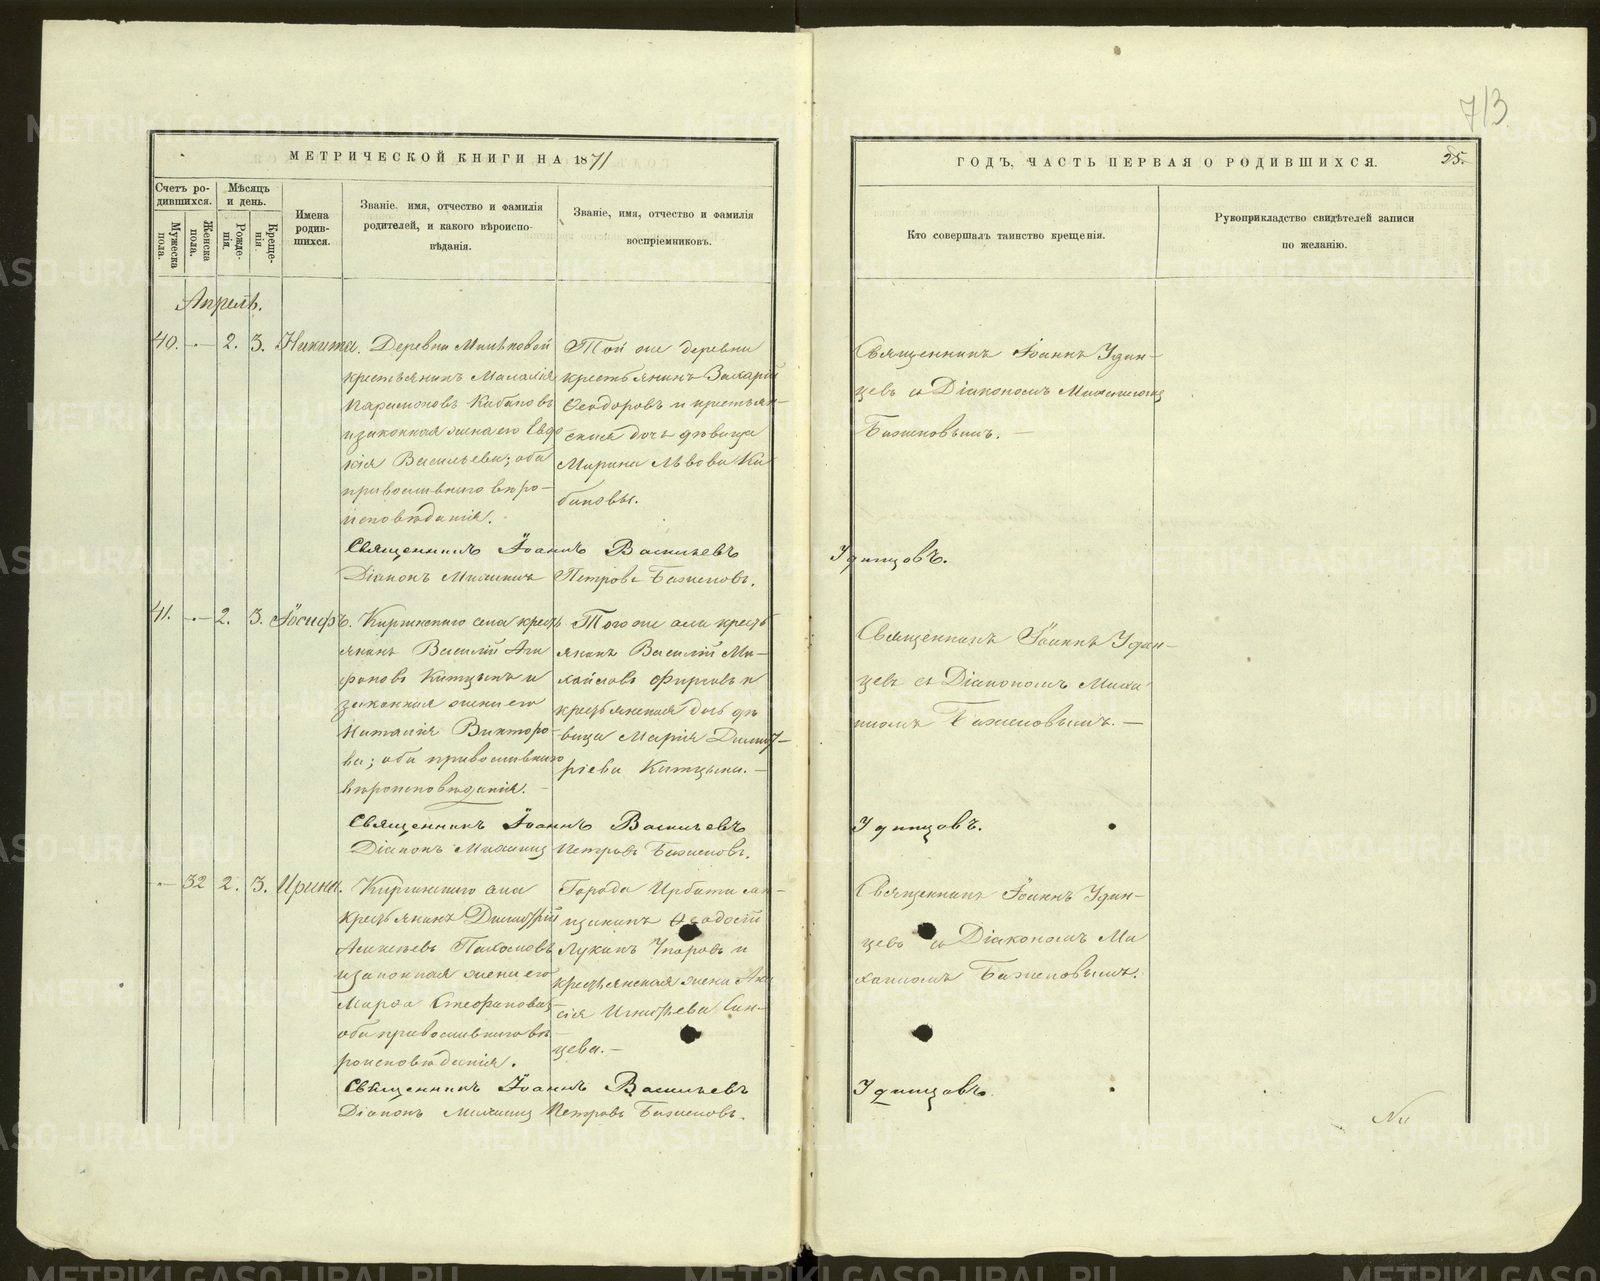 713
МЕТРИЧЕСКОЙ КНИГИ НА 1871
ГОДЪ, ЧАСТЬ ПЕРВАЯ О РОДИВШИХСЯ.
25.
Счетъ ро-
дившихся.
Мужеска
пола.
Женска
пола.
Мѣсяцъ
и день.
Рожде-
нія.
Креще-
нія.
Имена
родив-
шихся.
Званіе, имя, отчество и фамилія
родителей, и какого вѣроиспо-
вѣданія.
Званіе, имя, отчество и фамилія
воспріемниковъ.
Кто совершалъ таинство крещенія.
Рукоприкладство свидѣтелей записи
по желанію.
Апрель.
40. 2. 3. Никита.
Деревни
крестьянинъ
Парамоновъ Кабановъ
и законная жена его Евдо
кія Васильева; оба
православнаго вѣро-
исповѣданія.
Той же деревни
крестьянинъ Захарій
Ѳеодоровъ и крестьян-
ская дочь дѣвица
Марина Львова Ка
бановы.
Священникъ Іоаннъ Удин-
цевъ съ Діакономъ Михаиломъ
Баженовымъ.
Священникъ Іоаннъ Васильевъ Удинцовъ.
Діаконъ Михаилъ Петровъ Баженовъ.
41. 2. 3. Іосифъ.
Киргинскаго села кресть
янинъ Василій Ага
фоновъ Китцынъ и
законная жена его
Наталія Викторо-
ва; оба православнаго
вѣроисповѣданія.
Того же села кресть
янинъ Василій Ми-
хайловъ Фирсовъ и
крестьянская дочь дѣ
вица Марія Димит-
ріева Китцына.
Священникъ Іоаннъ Удин-
цевъ съ Діакономъ Миха
иломъ Баженовымъ.
Священникъ Іоаннъ Васильевъ Удинцовъ.
Діаконъ Михаилъ Петровъ Баженовъ.
32 2. 3. Ирина.
Киргинскаго села
крестьянинъ Димитрій
Алексѣевъ Пахомовъ
и законная жена его
Марѳа Стефанова;
оба православнаго вѣ
роисповѣданія.
Города Ирбита мѣ-
щанинъ Ѳеодосій
Лукинъ и
крестьянская жена
Игнатьева Син-
цева.
Священникъ Іоаннъ Удин-
цевъ съ Діакономъ Ми
хаиломъ Баженовымъ.
Священникъ Іоаннъ Васильевъ Удинцовъ.
Діаконъ Михаилъ Петровъ Баженовъ.
METRIKI.GASO-URAL.RU